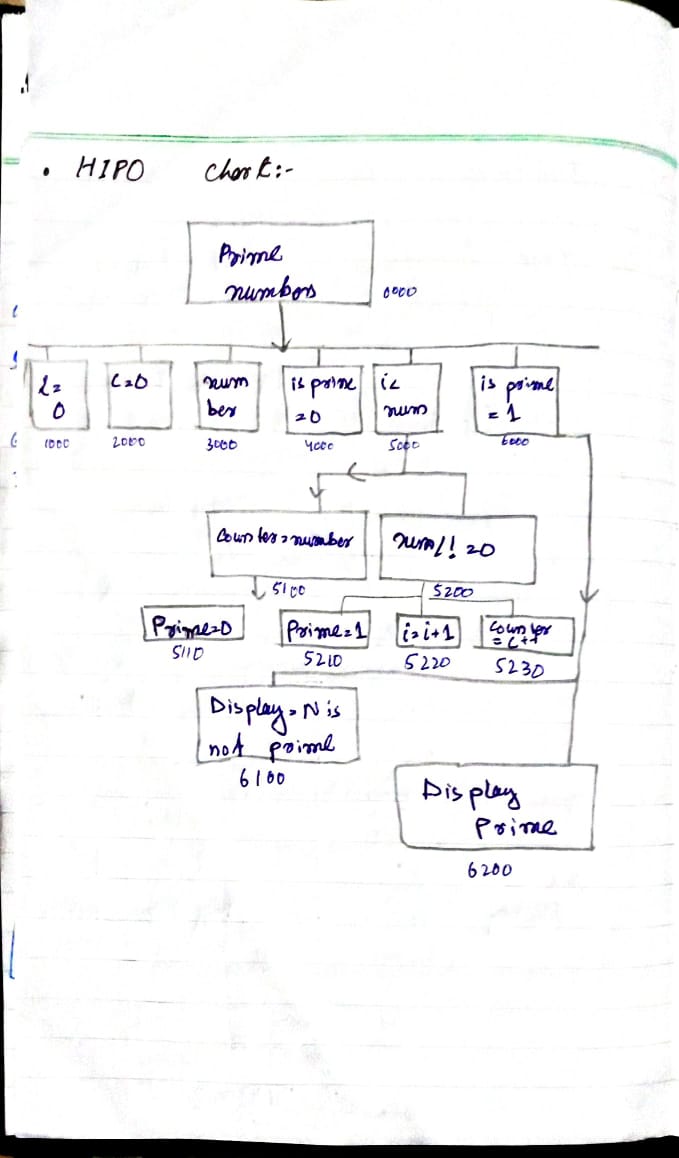 • HIPO Chart:-
Prime
numbers
0000
i=
0
1000
C=0
2000
num
ber
3000
is prime
=0
4000
i<
num
5000
is prime
= 1
6000
Counter=number
5100
num/! =0
5200
Prime=0
5110
Prime=1
5210
i=i+1
5220
Counter
= C++
5230
Display=N is
not prime
6100
Display
Prime
6200